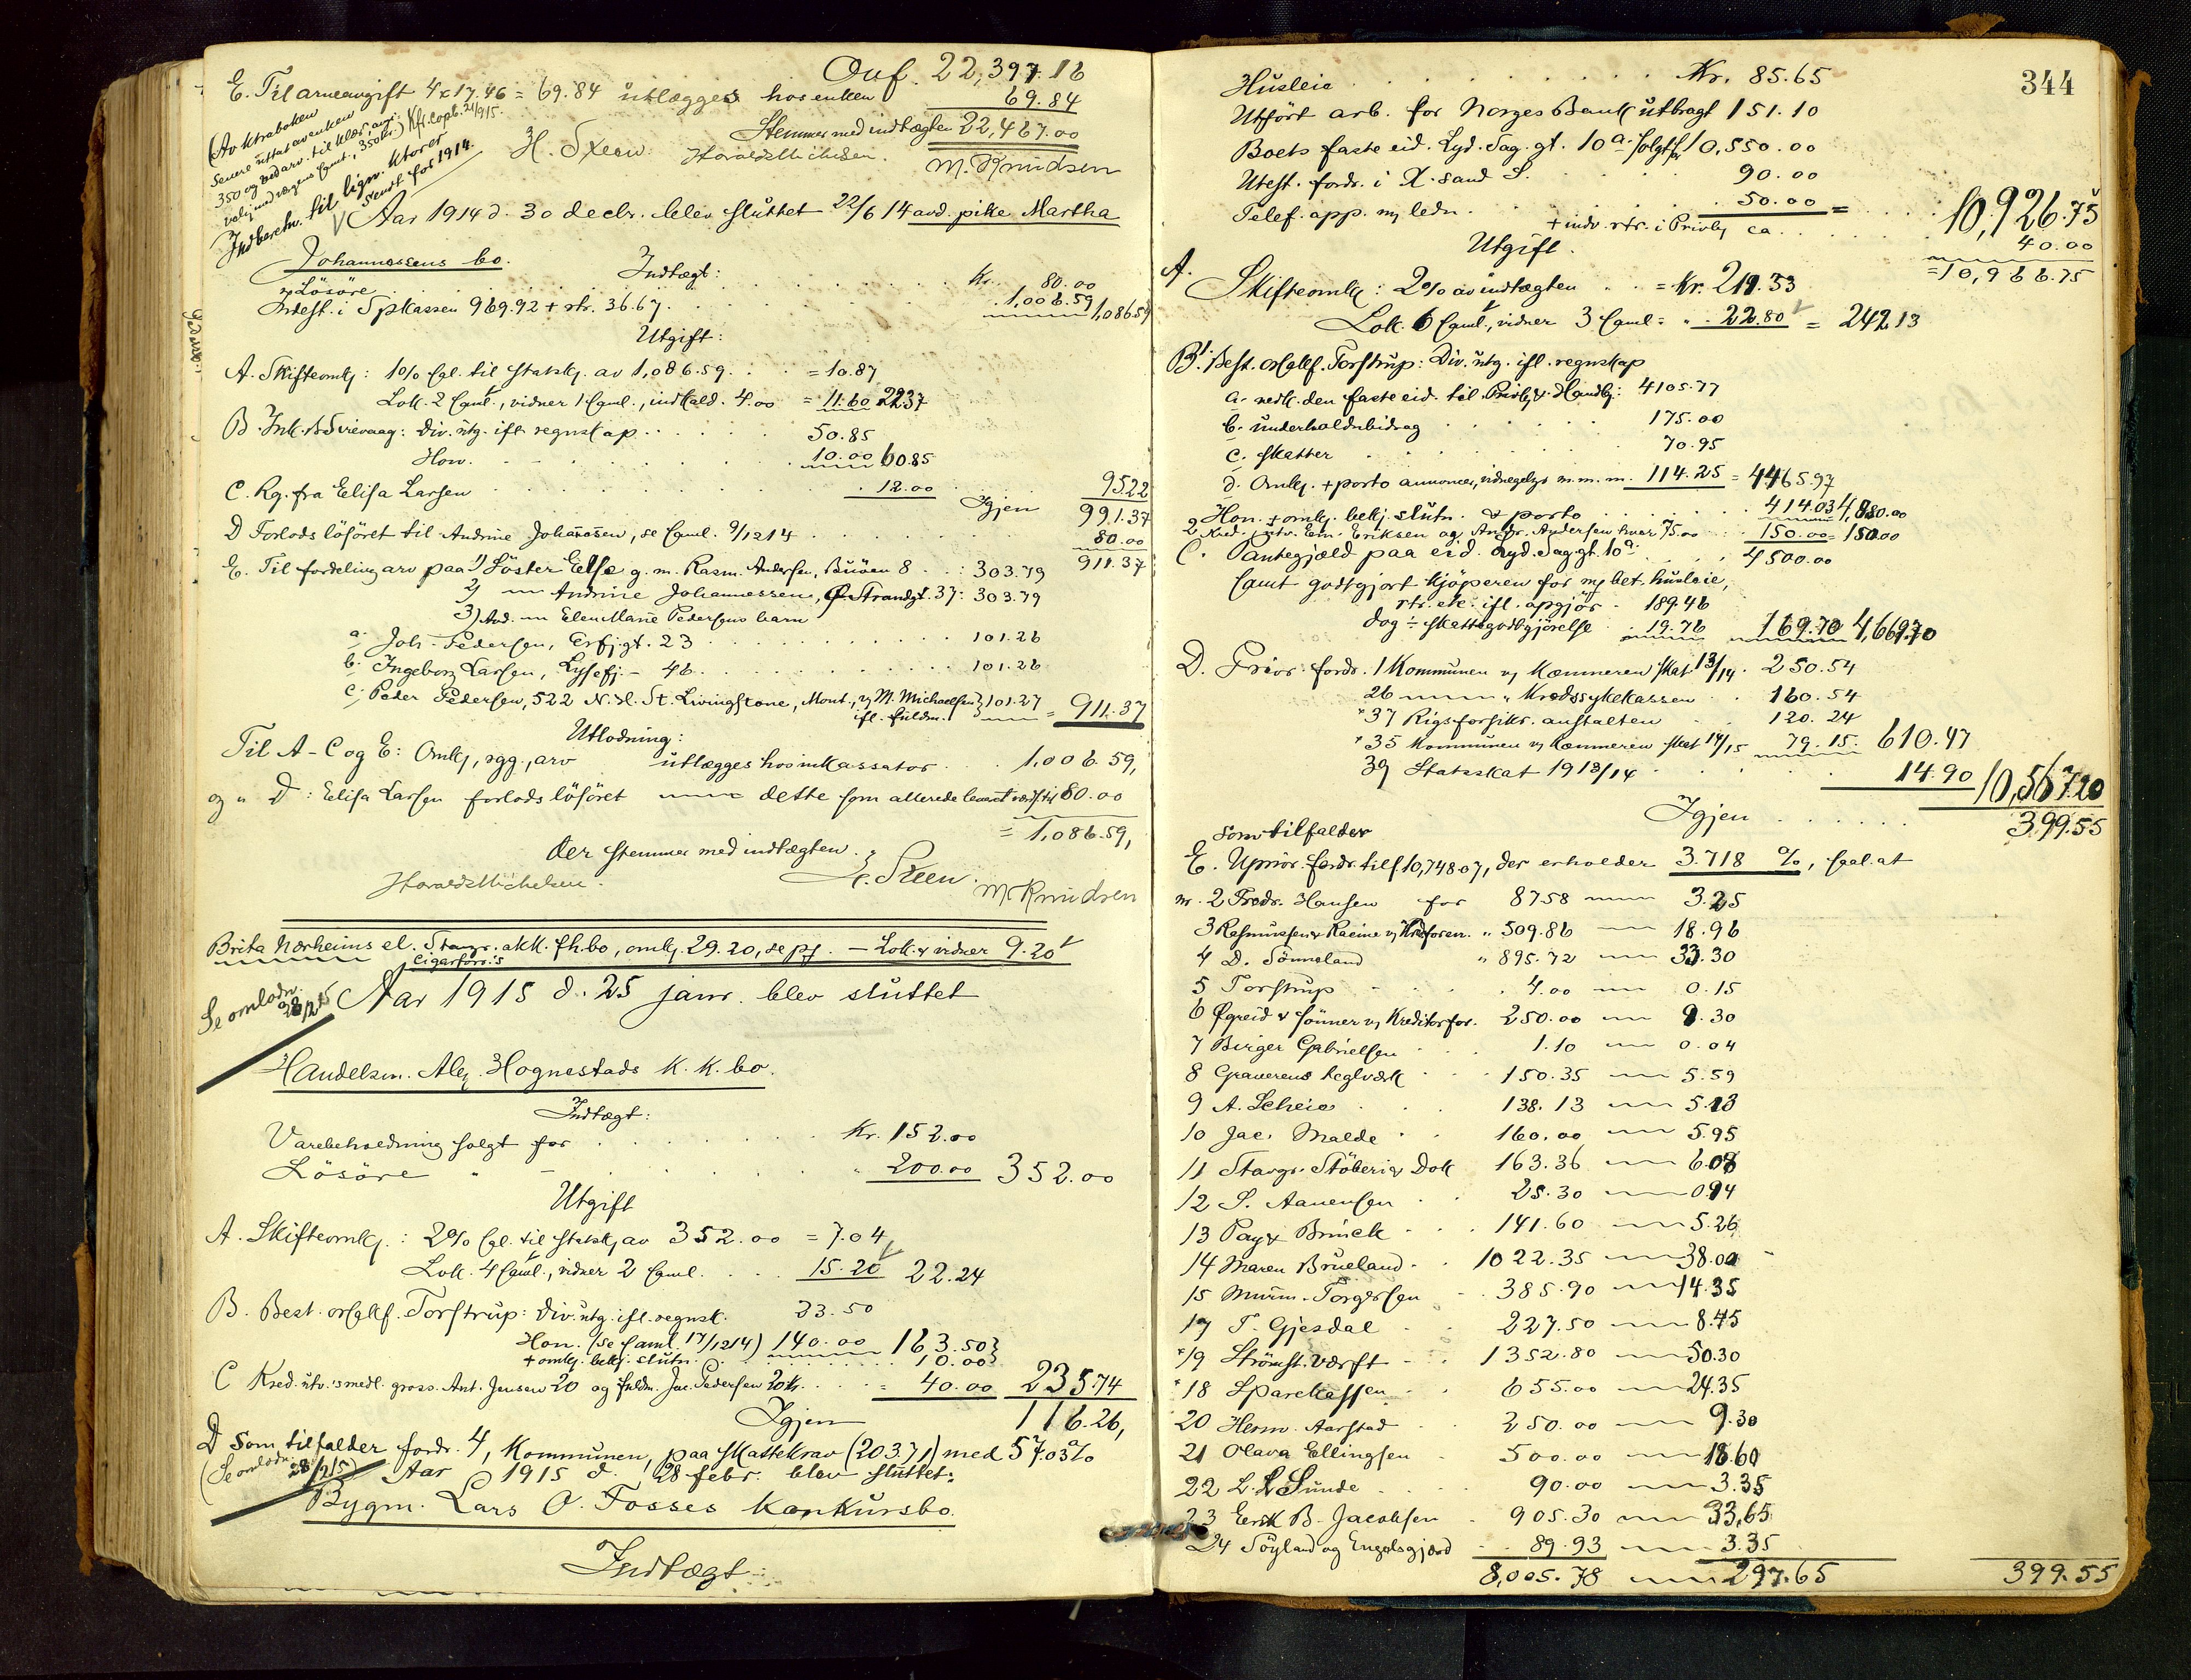 Ovf. 22,397.16
E. Til arveavgift 4 x 17.46 = 69.84 utlægges hos enken 69.84
Stemmer med indtægten 22,467.00
(Av ktraboken
senere uttat av enken
350 og ved arv. til klær, avgi.
Indberetn. til lign. ktorer
sendt for 1914.
H. Steen. Harald Michelsen. M. Knudsen
Aar 1914 d. 30 decbr. blev sluttet 22/6 14 avd. pike Martha
Johannessens bo.
Indtægt:
Løsøre Kr. 80.00
Indest. i Spkassen 969.92 + rtr. 36.67 1,006.59 1,086.59
Utgift:
A. Skifteomk.: 1% sgl. til statsk. av 1,086.59 = 10.87
Lok. 2 saml., vidner 1 saml., indkald. 4.00 = 11.60 22.37
B. Ink. B. Sirevaag: Div. utg. ifl. regnskap 50.85
Hon. 10.00 60.85
C. Rg. fra Elisa Larsen 12.00 95.22
Igjen 991.37
D Forlods løsøret til Andrine Johannesen, se saml. 9/12 14 80.00
911.37
E. Til fordeling arv paa 1) Søster Else g. m. Rasm. Andersen, Buøen 8 : 303.79
2) — Andrine Johannessen, Ø. Strandgt. 37: 303.79
3) Avd. — Elen Marie Pedersens barn
a. Joh. Pedersen, Erfj.gt. 23 101.26
b. Ingeborg Larsen, Lysefj. - 46 101.26
c. Peder Pedersen, 522 N. H. St. Livingstone, Mont., v/ M. Michaelsen ifl. fuldm. 101.27 = 911.37
Utlodning:
Til A - C og E: Omk., rgg., arv utlægges hos inkassator 1,006.59,
og " D: Elisa Larsen forlods løsøret — dette som allerede leveret værdi til 80.00
= 1,086.59,
der stemmer med indtægten.
Harald Michelsen. H. Steen. M Knudsen
Brita Nærheims el. Stavgr. akk. fh. bo, omk. 29.20, se pr. — Lok. & vidner 9.20
Cigarforr.'s
Se omlodn. 28/2 15 Aar 1915 d. 25 janr. blev sluttet
Handelsm. Alex. Hognestads k. k. bo.
Indtægt:
Varebeholdning solgt for Kr. 152.00
Løsøre " — " 200.00 352.00
Utgift
A. Skifteomk.: 2% sgl. til statsk. av 352.00 = 7.04
Lok. 4 saml., vidner 2 saml. 15.20 22.24
B. Best. orsakf. Torstrup: Div. utg. ifl. regnsk. 23.50
Hon. (se saml. 17/12 14) 140.00 163.50
+ omk. bekj. slutn. 10.00
C Kred. utv.'s medl. gross. Ant. Jensen 20 og fuldm. Jac. Pedersen 20 k. = 40.00 235.74
Igjen 116.26,
D Som tilfalder fordr. 4, Kommunen, paa skattekrav (203.71) med 57.03%
(Se omlodn. 28/2 15) Aar 1915 d. 28 febr. blev sluttet:
Bygm. Lars O. Fosses konkursbo.
Indtægt:
344
Husleie Kr. 85.65
Utført arb. for Norges Bank utbragt 151.10
Boets faste eid. Lyd. Sag. gt. 10 a. solgt fr 10,550.00
Utest. fordr. i K. Sand S. 90.00
Telef. app. m/ ledn. 50.00 = 10,926.75
+ indv. rtr. i Privb. ca. 40.00
= 10,966.75
Utgift.
A. Skifteomk.: 2% av indtægten = Kr. 219.33
Lok. 6 saml., vidner 3 saml. = " 22.80 = 242.13
B1. Best. orsakf. Torstrup: Div. utg. ifl. regnskap
a. nedk. den faste eid. til Privb. & Handb.: 4105.77
b. underholdsbidrag 175.00
c. skatter 70.95
d. Omk. + porto annoncer, vidnegebyr m. m. m. 114.25 = 4465.97
Hon. + omk. bekj. slutn. & porto 414.03 4,880.00
2 Kred. utv. Em. Eriksen og Andr. Andersen hver 75.00 150.00 = 150.00
C. Pantegjæld paa eid. Lyd. Sag. gt. 10 a. 4500.00
samt godtgjort kjøperen for m/ bet. husleie,
rtr. etc. ifl. opgjør 189.46
dog ÷ skattegodtgjørelse 19.76 169.70 4,669.70
D. Prior. fordr. 1 Kommunen v/ Kæmneren skat 13/14 250.54
26 — " Kredssykekassen 160.54
" 37 Rigsforsikr. anstalten 120.24
" 35 Kommunen v/ Kæmneren skat 14/15 79.15 610.47
39 Statsskat 1913/14 14.90 10,567.20
Igjen 399.55
som tilfalder
E. Uprior. fordr. tils. 10,748.07, der erholder 3.718 %, saal. at
nr. 2 Fredr. Hansen for 87.58 — 3.25
3 Rasmussen & Racine v/ Kredforen. " 509.86 — 18.96
4 D. Sømneland " 895.72 — 33.30
5 Torstrup 4.00 — 0.15
6 Øgreid & Sønner v/ Kreditorfor. 250.00 — 9.30
7 Birger Gabrielsen 1.10 — 0.04
8 Graverens teglværk 150.35 — 5.59
9 A. Scheie 138.13 — 5.13
10 Jac. Malde 160.00 — 5.95
11 Stavgr. Støberi & Dok 163.36 — 6.08
12 S. Aanensen 25.30 — 0.94
13 Pay & Brinck 141.60 — 5.26
14 Maren Brueland 1022.35 — 38.00
15 Murm. Torgersen 385.90 — 14.35
17 T. Gjesdal 227.50 — 8.45
" 19 Strømst. Værft 1352.80 — 50.30
" 18 Sparekassen 655.00 — 24.35
20 Herm. Aarstad 250.00 — 9.30
21 Olava Ellingsen 500.00 — 18.60
22 L. L. Sunde 90.00 — 3.35
23 Eirik B. Jacobsen 905.30 — 33.65
24 Søyland og Engelsgjerd 89.93 — 3.35
8,005.78 — 297.65 399.55